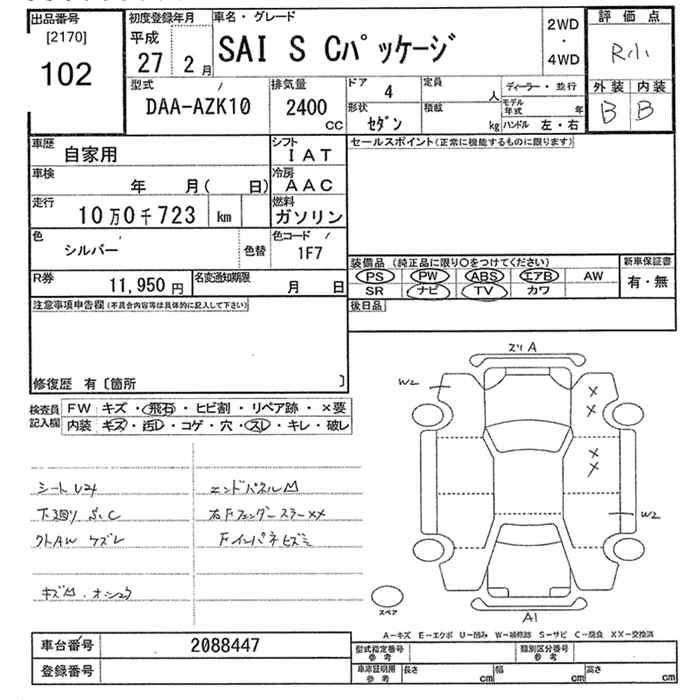 出品番号
[2170]
102
初度登録年月
平成
27 2月
車名・グレード
SAI S Cパッケージ
2WD
・
4WD
評価点
R
外装 内装
B B
型式
DAA-AZK10
排気量
2400
CC
ドア
4
定員
人
形状
セダン
積載
kg
ディーラー・並行
モデル年式 年
ハンドル 左・右
車歴
自家用
シフト
IAT
車検
年 月( 日)
冷房
AAC
走行
10万0千723 km
燃料
ガソリン
色
シルバー
色替
色コード
1F7
R券
11,950円
名変通知期限
月 日
セールスポイント(正常に機能するものに限ります)
装備品 (純正品に限り〇をつけてください)
PS PW ABS エアB AW
SR ナビ TV カワ
新車保証書
有・無
後日品
注意事項申告欄(不具合内容等は具体的に記入して下さい)
修復歴 有〔箇所 〕
検査員
記入欄
FW キズ・飛石・ヒビ割・リペア跡・×要
内装 キズ・汚レ・コゲ・穴・スレ・キレ・破レ
エンドパネル凹
下廻り
右Fフェンダー XX
クトAW ケズレ
Fインパネヒズミ
スリA
W2
×
×
×
×
W2
A1
スペア
A-キズ E-エクボ U-凹み W-補修跡 S-サビ C-腐食 XX-交換済
車台番号
2088447
登録番号
型式指定番号
参考
類別区分番号
参考
車庫証明用
参考
長さ cm
幅 cm
高さ cm